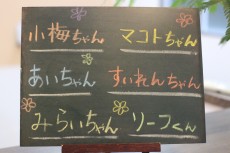 小梅ちゃん マコトちゃん
あいちゃん すいれんちゃん
みらいちゃん リーフくん